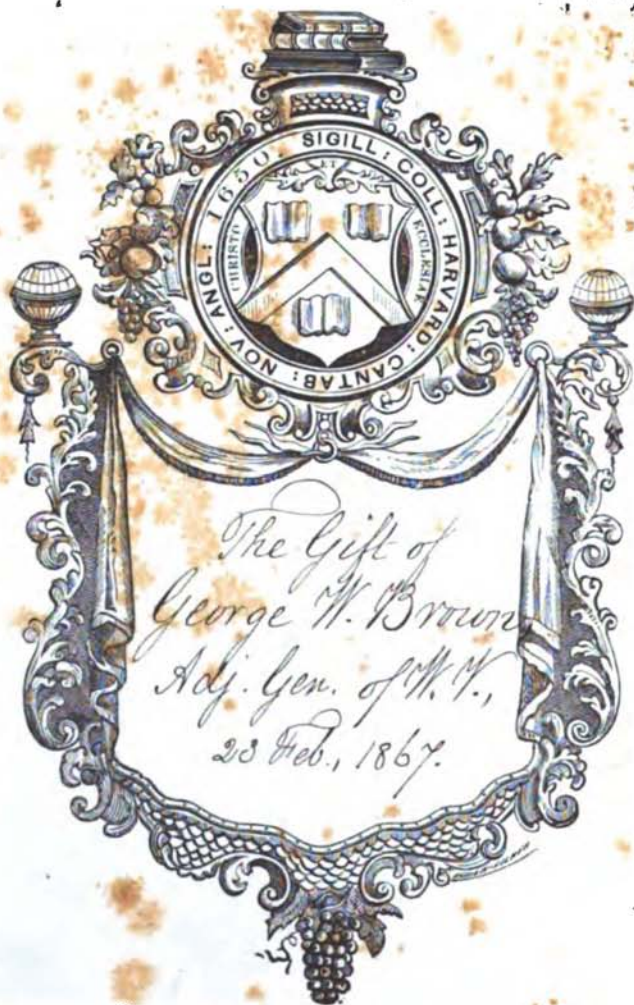 SIGILL: COLL: HARVARD: CANTAB: NOV: ANGL: 1650.
CHRISTO
ET
ECCLESIAE
The Gift of
George W. Brown
Adj. Gen. of W. V.,
23 Feb., 1867.